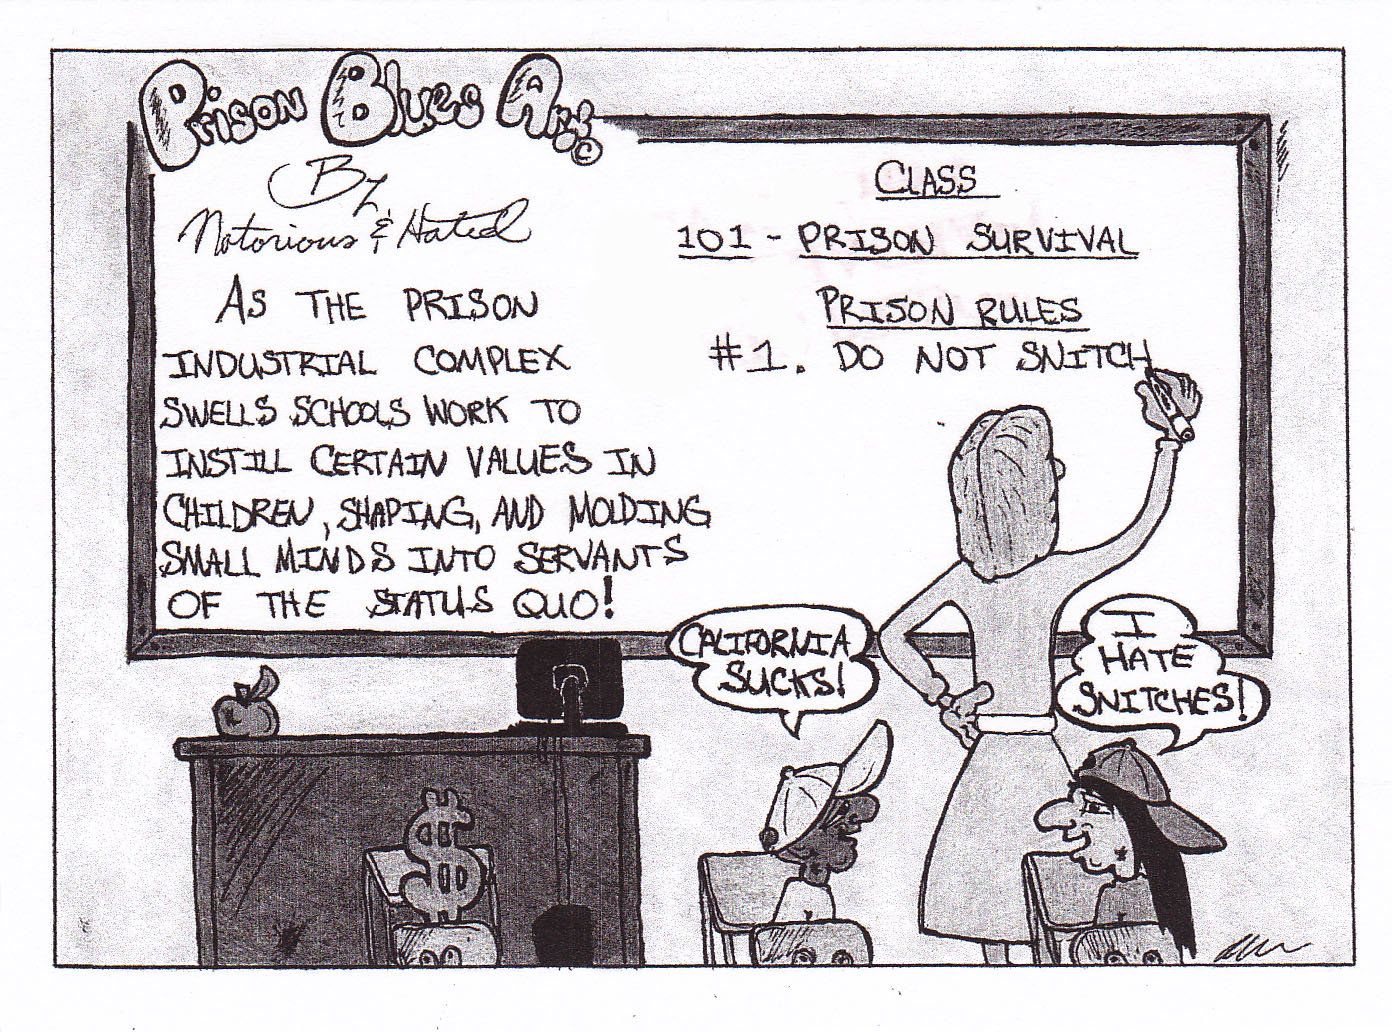 Prison Blues Art ©
By
Notorious & Hated
AS THE PRISON
INDUSTRIAL COMPLEX
SWELLS SCHOOLS WORK TO
INSTILL CERTAIN VALUES IN
CHILDREN, SHAPING, AND MOLDING
SMALL MINDS INTO SERVANTS
OF THE STATUS QUO!
CLASS
101 - PRISON SURVIVAL
PRISON RULES
#1. DO NOT SNITCH
CALIFORNIA
SUCKS!
I
HATE
SNITCHES!
$